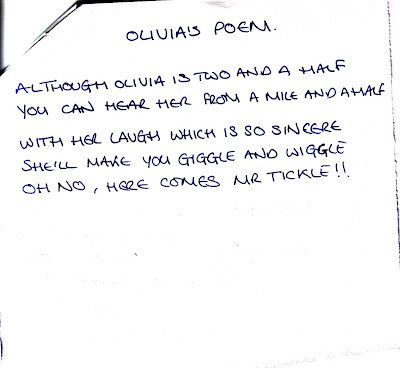 OLIVIA'S POEM.
ALTHOUGH OLIVIA IS TWO AND A HALF
YOU CAN HEAR HER FROM A MILE AND A HALF
WITH HER LAUGH WHICH IS SO SINCERE
SHE'LL MAKE YOU GIGGLE AND WIGGLE
OH NO, HERE COMES MR TICKLE!!